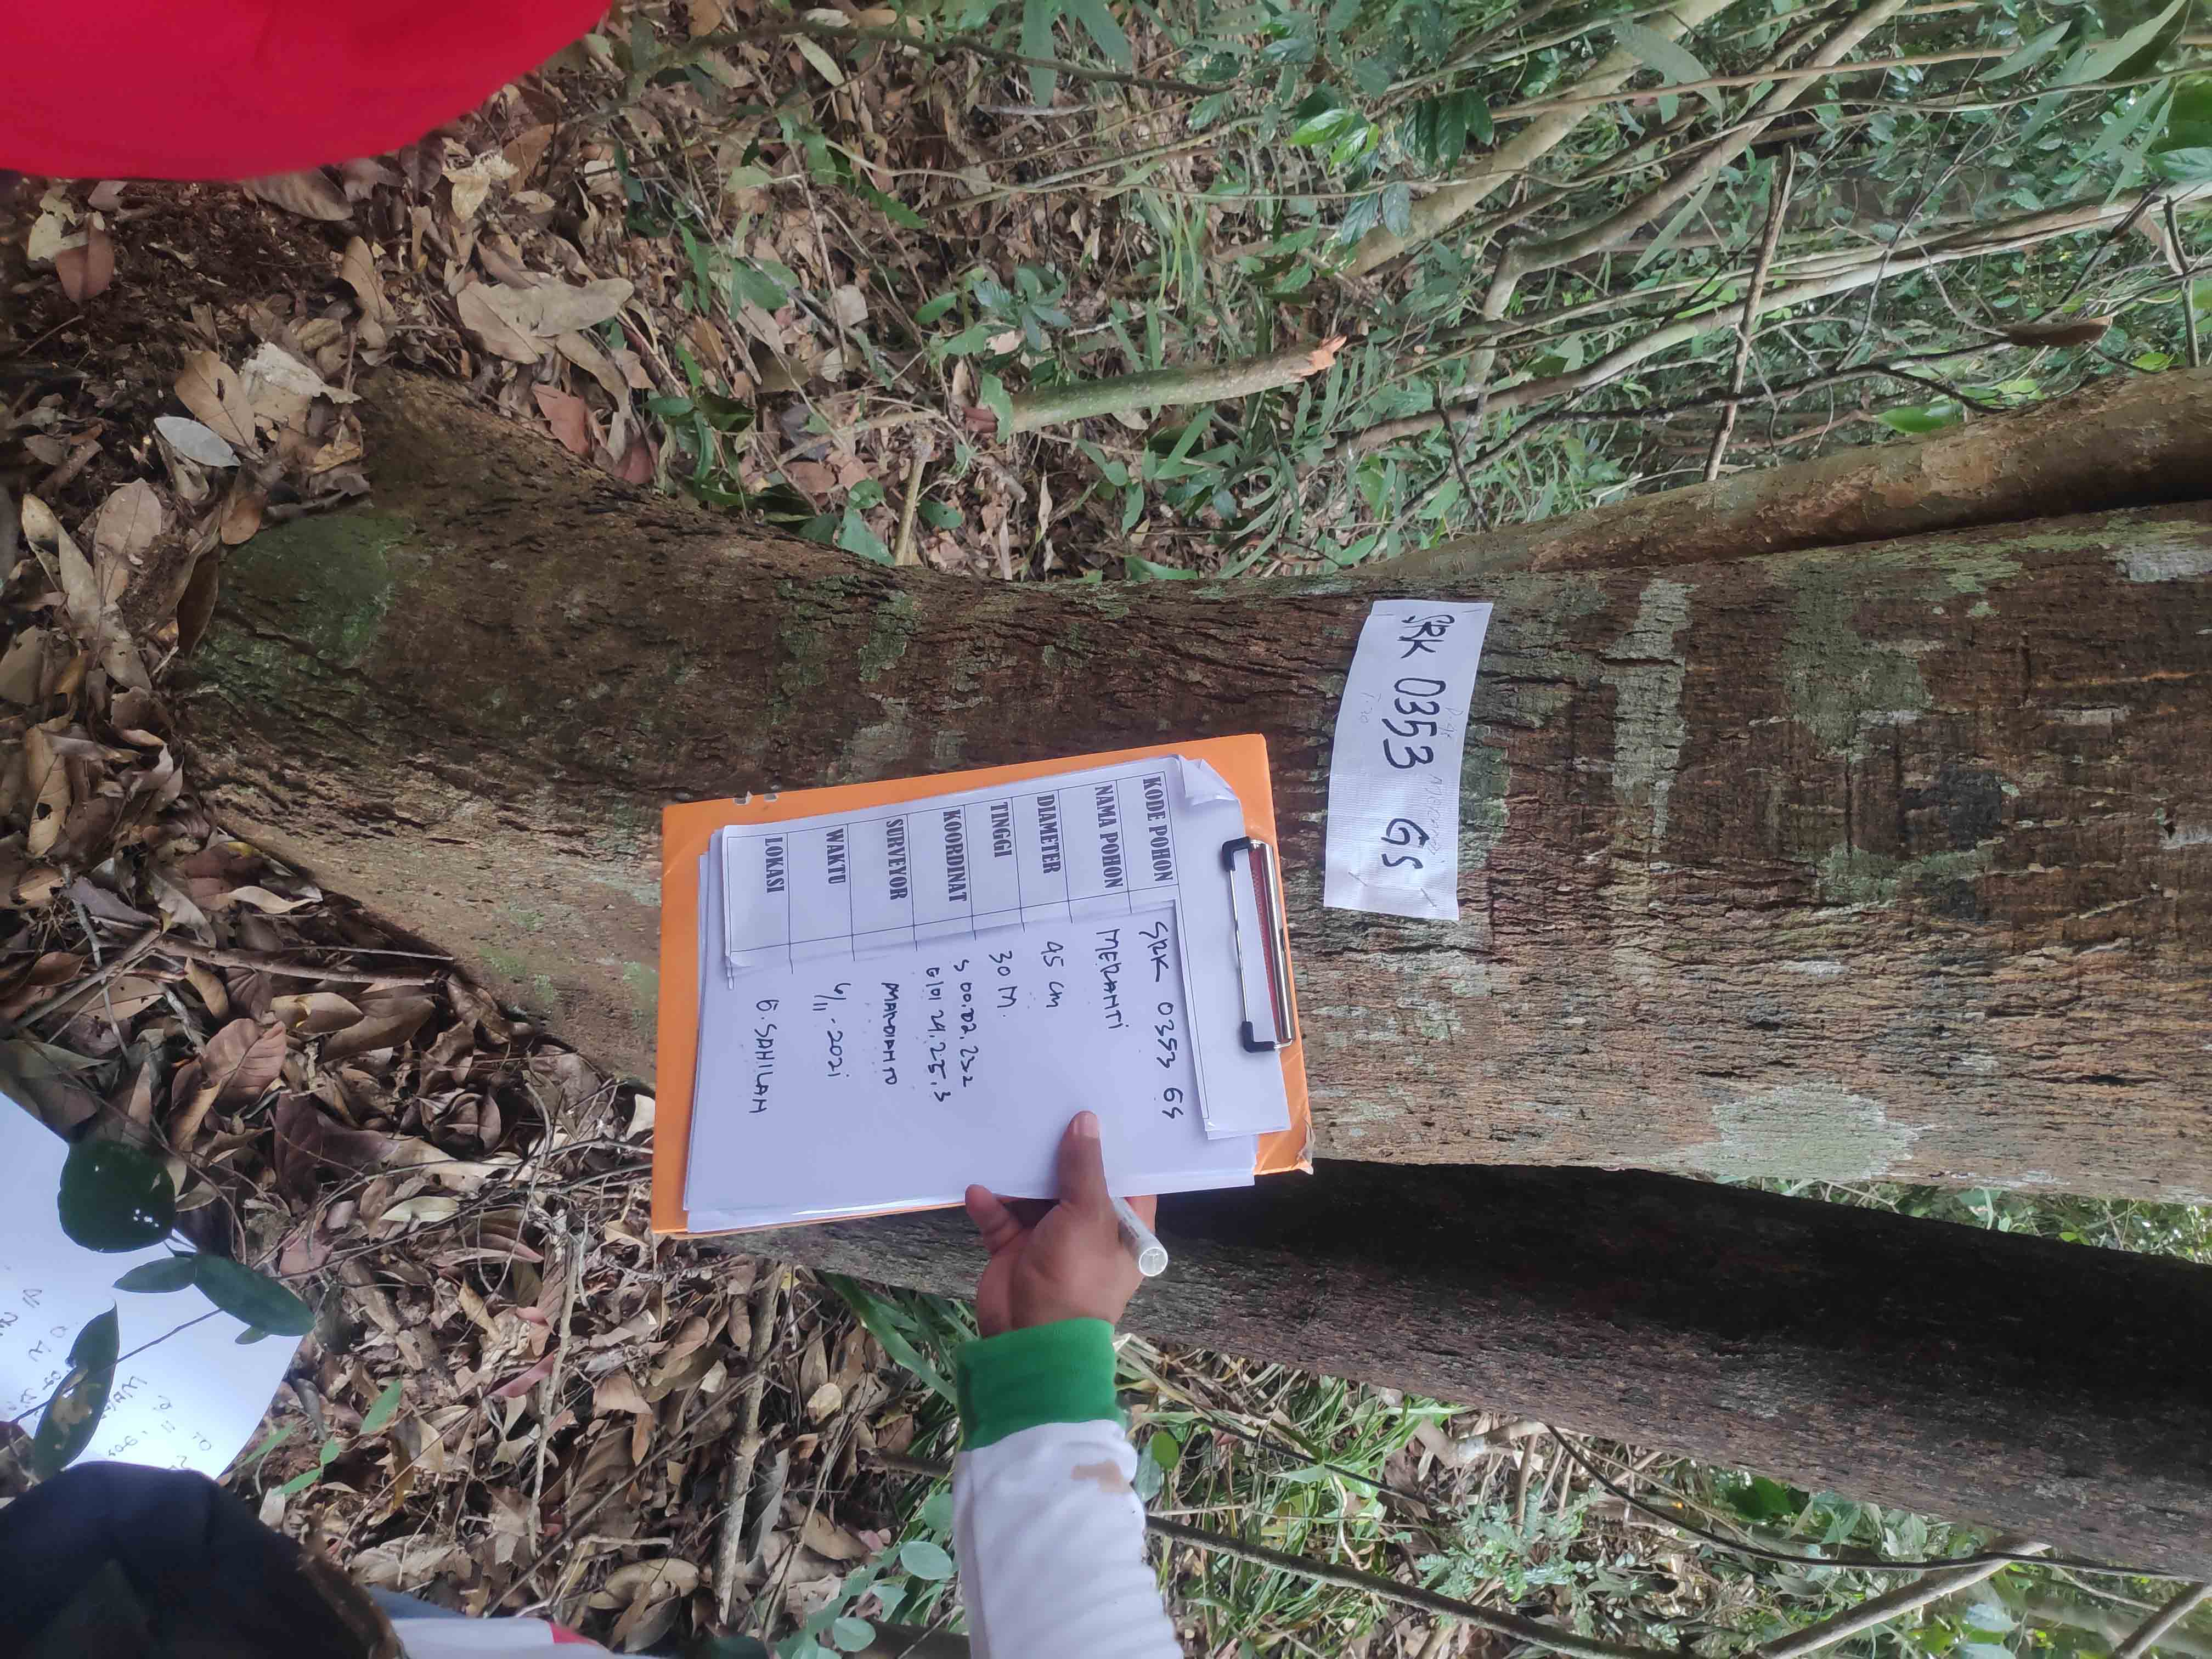 SRK 0353 GS
KODE POHON SRK 0353 GS
NAMA POHON MERANTI
DIAMETER 45 cm
TINGGI 30 M.
KOORDINAT S 00.02.252
E 101 24.225.3
SURVEYOR MARDIANTO
WAKTU 4/11-2021
LOKASI G.SAHILAH